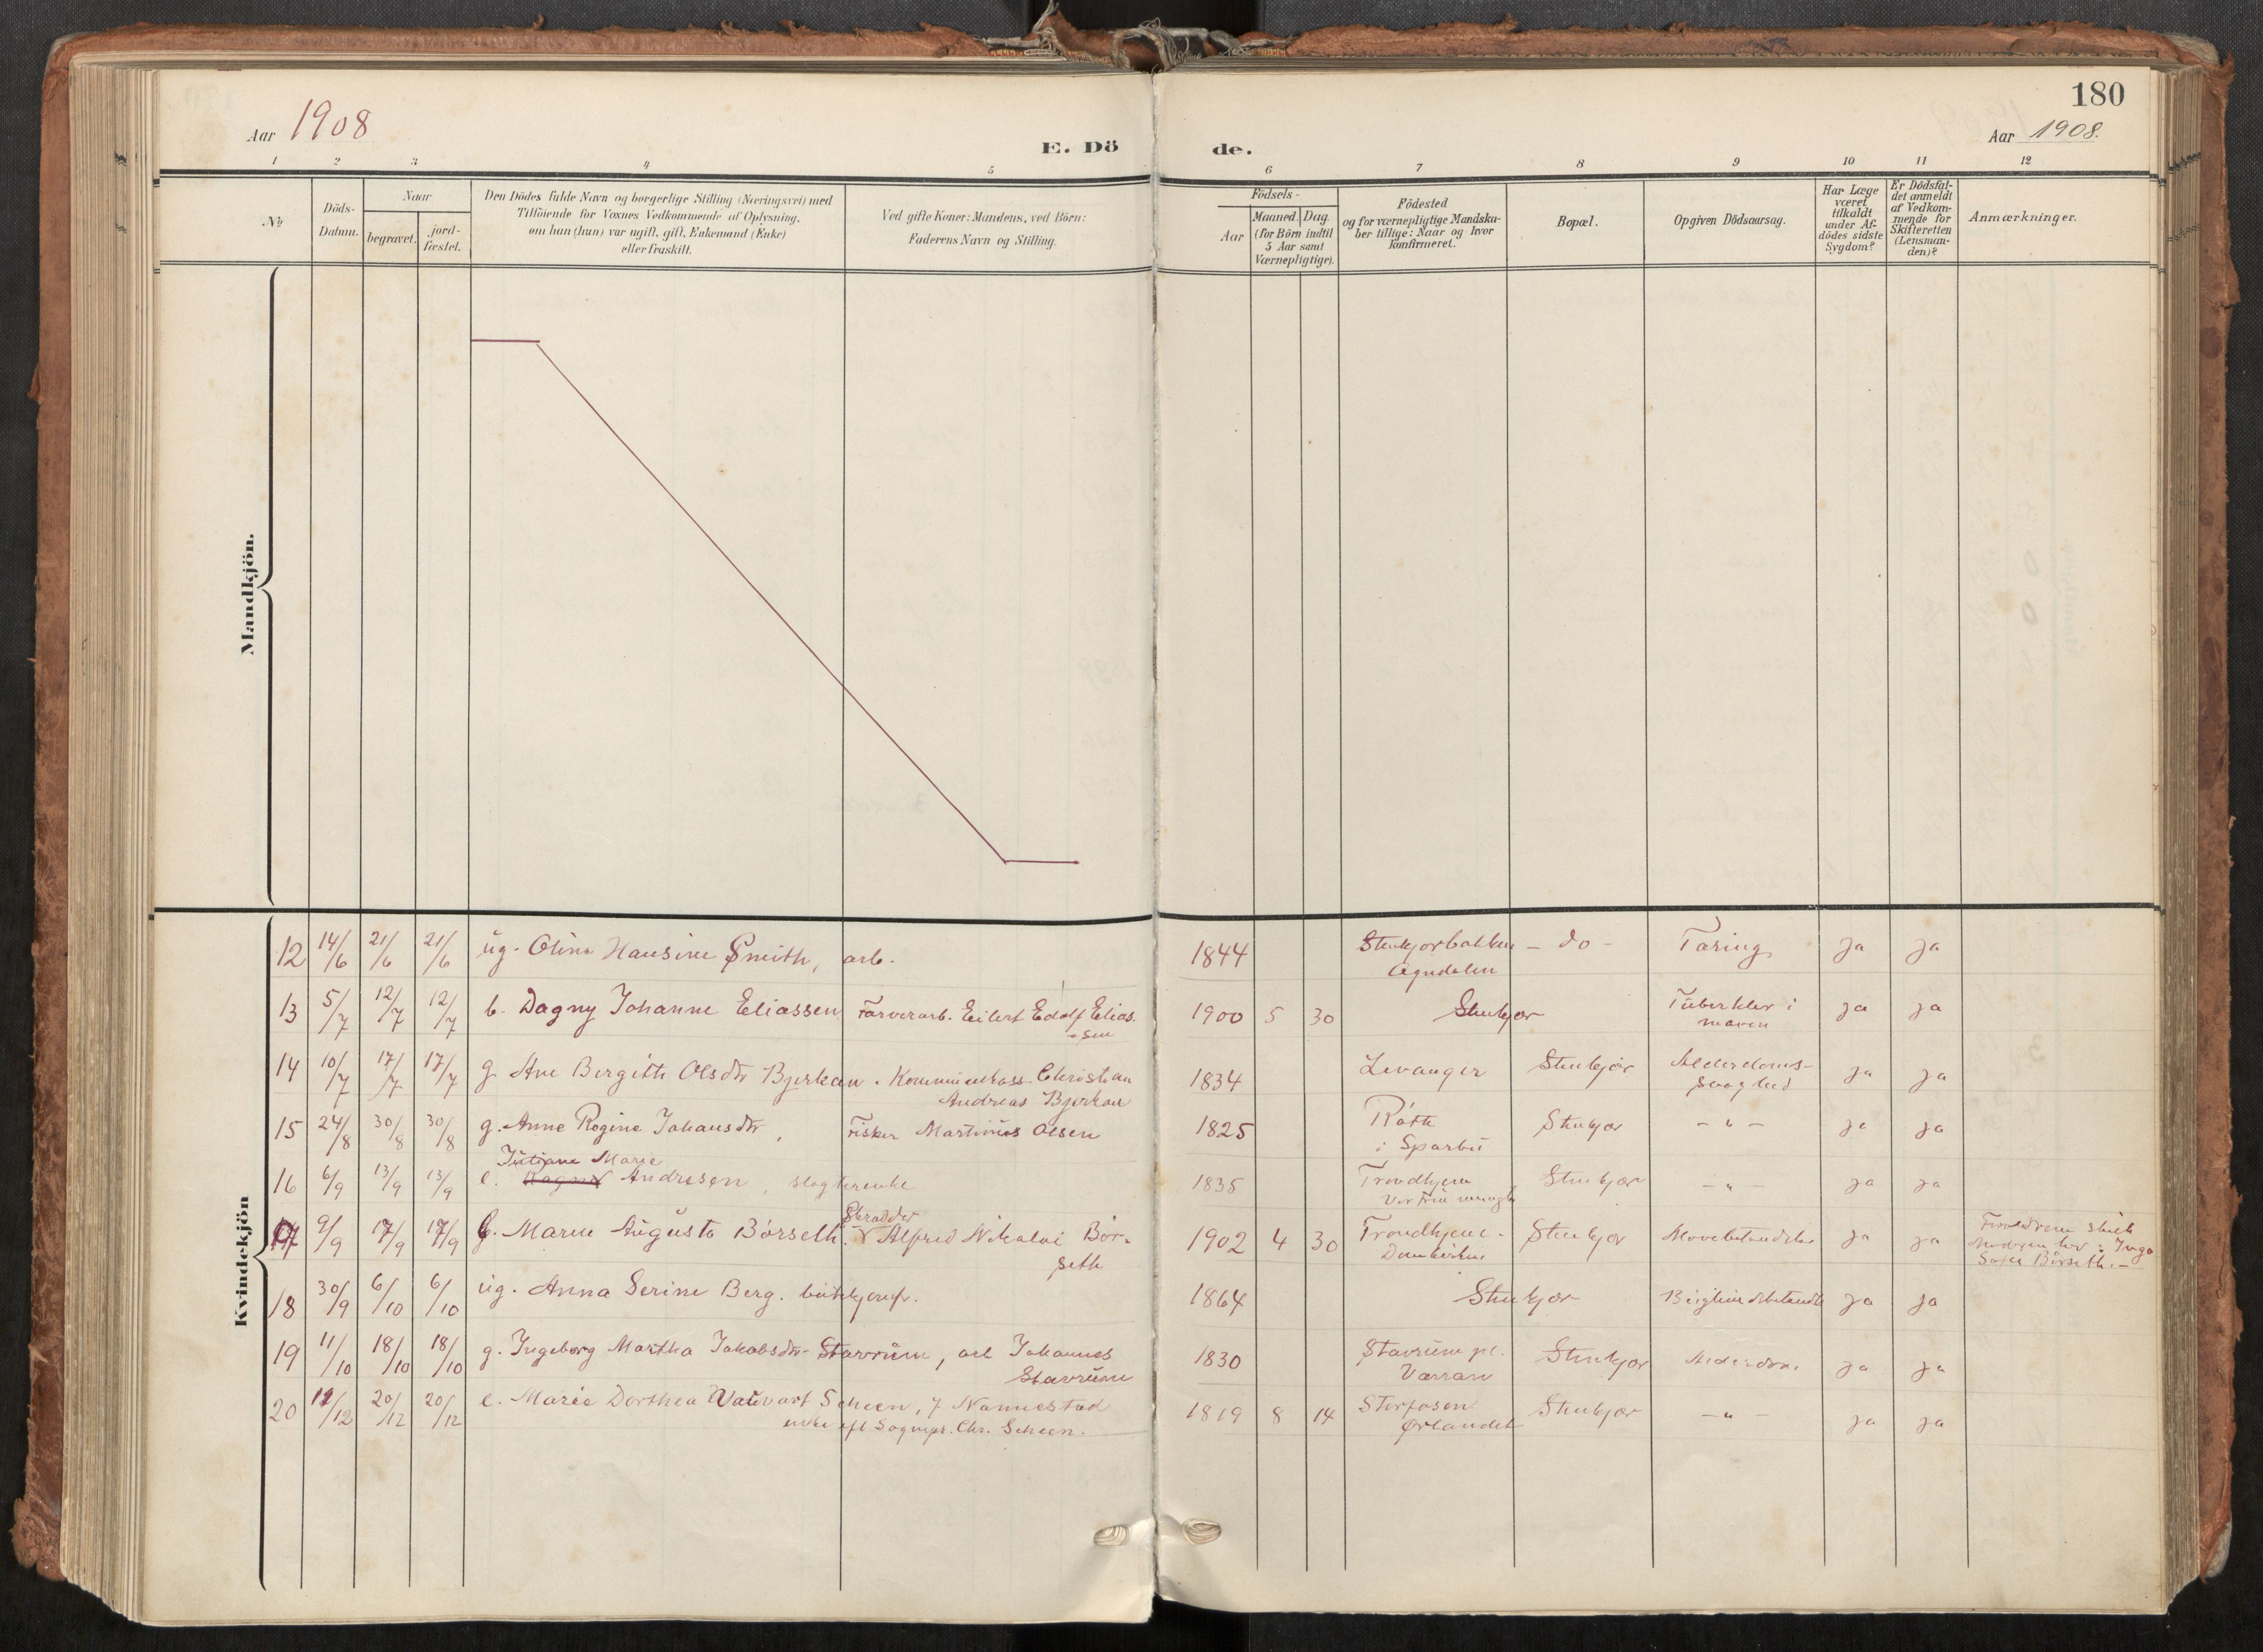 180
Aar 1908
Aar 1908.
E. Dö
de.
1 2 3 4 5 6 7 8 9 10 11 12
No
Döds-
Datum.
Naar
begravet.
jord-
fæstet.
Den Dödes fulde Navn og borgerlige Stilling (Næringsvei) med
Tilföiende for Voxnes Vedkommende af Oplysning,
om han (hun) var ugift, gift, Enkemand (Enke)
eller fraskilt.
Ved gifte Koner: Mandens, ved Börn:
Faderens Navn og Stilling.
Födsels-
Aar
Maaned. Dag.
(for Börn indtil
5 Aar samt
Værnepligtige).
Födested
og for værnepligtige Mandska-
ber tillige: Naar og hvor
konfirmeret.
Bopæl.
Opgiven Dödsaarsag.
Har Læge
været
tilkaldt
under Af-
dödes sidste
Sygdom?
Er Dödsfal-
det anmeldt
af Vedkom-
mende for
Skifteretten
(Lensman-
den)?
Anmærkninger.
Mandkjön.
Kvindekjön
12 14/6 21/6 21/6 ug. Olina Hansine Smith, arb. 1844 Stenkjærbakken - do - Tæring ja ja
Ogndalen
13 5/7 12/7 12/7 b. Dagny Johanne Eliassen Farverarb. Eilert Edolf Elias- 1900 5 30 Stenkjær Tuberkler i ja ja
sen maven
14 10/7 17/7 17/7 g. Ane Bergitte Olsdtr Bjerkan. Christian 1834 Levanger Stenkjær Alderdoms- ja ja
Andreas Bjerkan svaghed
15 24/8 30/8 30/8 g. Anne Regine Johansdtr, Fisker Martinus Olsen 1825 Stenkjær - " - ja ja
i Sparbu
Juliane Marie
16 6/9 13/9 13/9 e. Andresen, slagterenke 1835 Trondhjem Stenkjær - " - ja ja
Vor Frue
Skrædder
17 9/9 17/9 17/9 b. Maren Augusta Börseth. Alfred Nikolai Bör- 1902 4 30 Trondhjem Stenkjær ja ja Forældrene
seth Domkirken Inga
Börseth.
18 30/9 6/10 6/10 ug. Anna Serine Berg. 1864 Stenkjær ja ja
19 11/10 18/10 18/10 g. Ingeborg Martha Jakobsdtr. Stavrum, arb Johannes 1830 Stavrum pl. Stenkjær Alderdom ja ja
Stavrum Værran
20 12/12 20/12 20/12 e. Marie Dorthea Scheen, f Nannestad 1819 8 14 Storfosen Stenkjær - " - ja ja
enke eft Sognepr. Chr. Scheen. Ørlandet